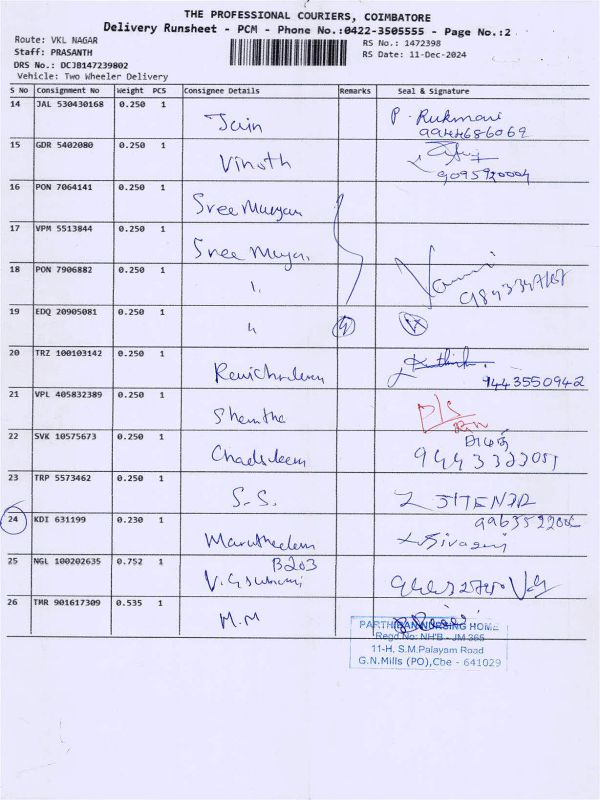 THE PROFESSIONAL COURIERS, COIMBATORE
Delivery Runsheet - PCM - Phone No.:0422-3505555 - Page No.:2
Route: VKL NAGAR
RS No.: 1472398
Staff: PRASANTH
RS Date: 11-Dec-2024
DRS No.: DCJB147239802
Vehicle: Two Wheeler Delivery
S No Consignment No Weight PCS Consignee Details Remarks Seal & Signature
14 JAL 530430168 0.250 1 Jain P. Rukmani
9944686069
15 GDR 5402080 0.250 1 Vinoth
9095920004
16 PON 7064141 0.250 1 Sree
17 VPM 5513844 0.250 1 Sree
18 PON 7906882 0.250 1
19 EDQ 20905081 0.250 1
20 TRZ 100103142 0.250 1
9443550942
21 VPL 405832389 0.250 1
22 SVK 10575673 0.250 1
23 TRP 5573462 0.250 1 S.S.
24 KDI 631199 0.230 1
25 NGL 100202635 0.752 1 B203
26 TMR 901617309 0.535 1 M.M
PARTHIBAN NURSING HOME
Regd No: NH'B - JM 365
11-H, S.M.Palayam Road
G.N.Mills (PO),Cbe - 641029